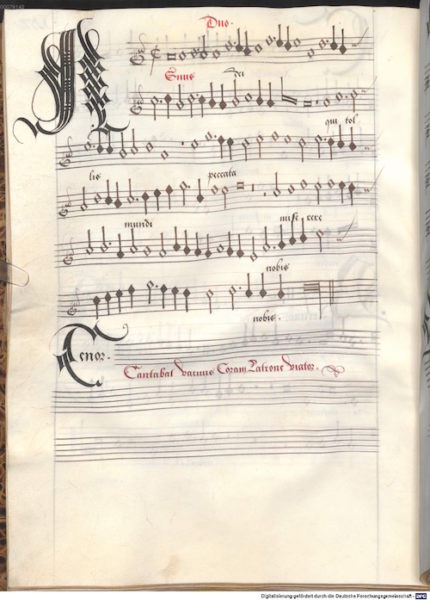 Duo.
A Gnus dei
qui tol
lis peccata
mundi mise rere
nobis
nobis.
Tenor.
Cantabat vacuus Coram Latrone viator.
Digitalisierung gefördert durch die Deutsche Forschungsgemeinschaft - DFG